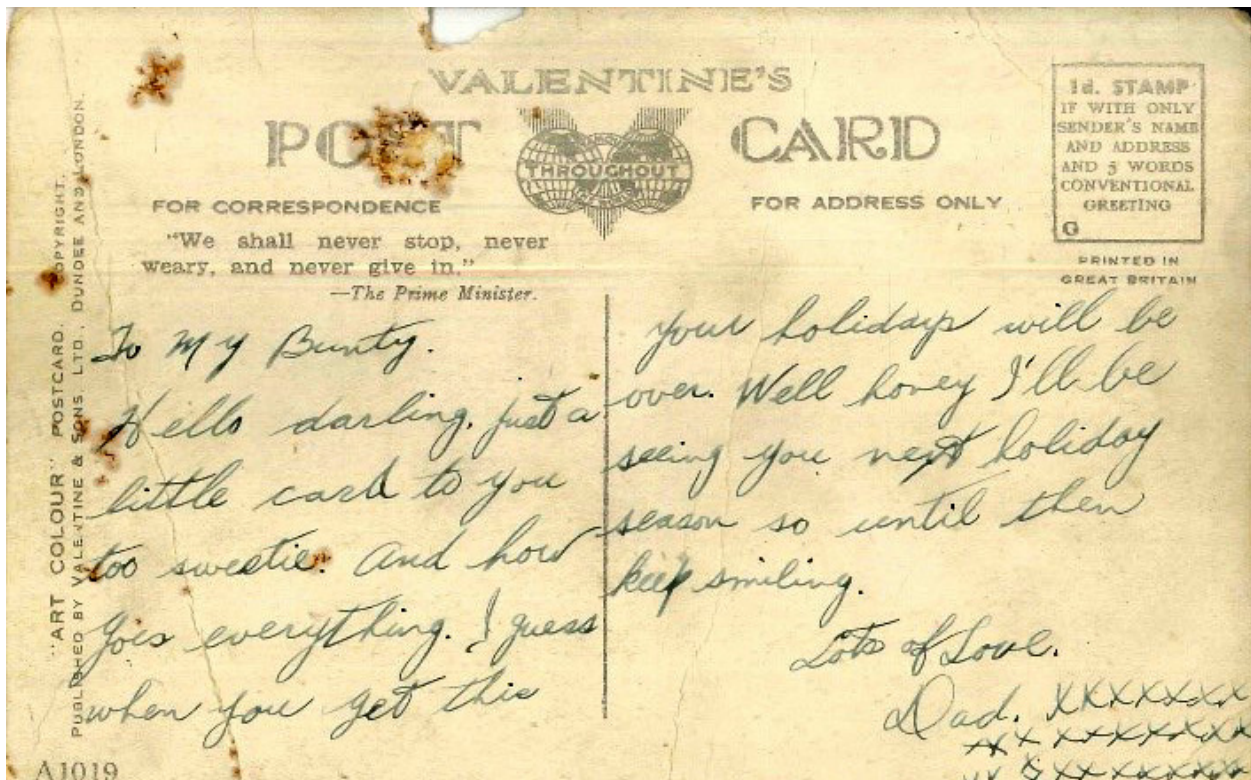 VALENTINE'S
POST CARD
THROUGHOUT
FOR CORRESPONDENCE
FOR ADDRESS ONLY
1d. STAMP
IF WITH ONLY
SENDER'S NAME
AND ADDRESS
AND 5 WORDS
CONVENTIONAL
GREETING
G
PRINTED IN
GREAT BRITAIN
"We shall never stop, never
weary, and never give in."
—The Prime Minister.
"ART COLOUR" POSTCARD. COPYRIGHT.
PUBLISHED BY VALENTINE & SONS LTD., DUNDEE AND LONDON.
To My Bunty.
Hello darling, just a
little card to you
too sweetie. And how
goes everything. I guess
when you get this
your holidays will be
over. Well honey I'll be
seeing you next holiday
season so until then
keep smiling.
Lots of Love.
Dad. XXXXXXX
A1019